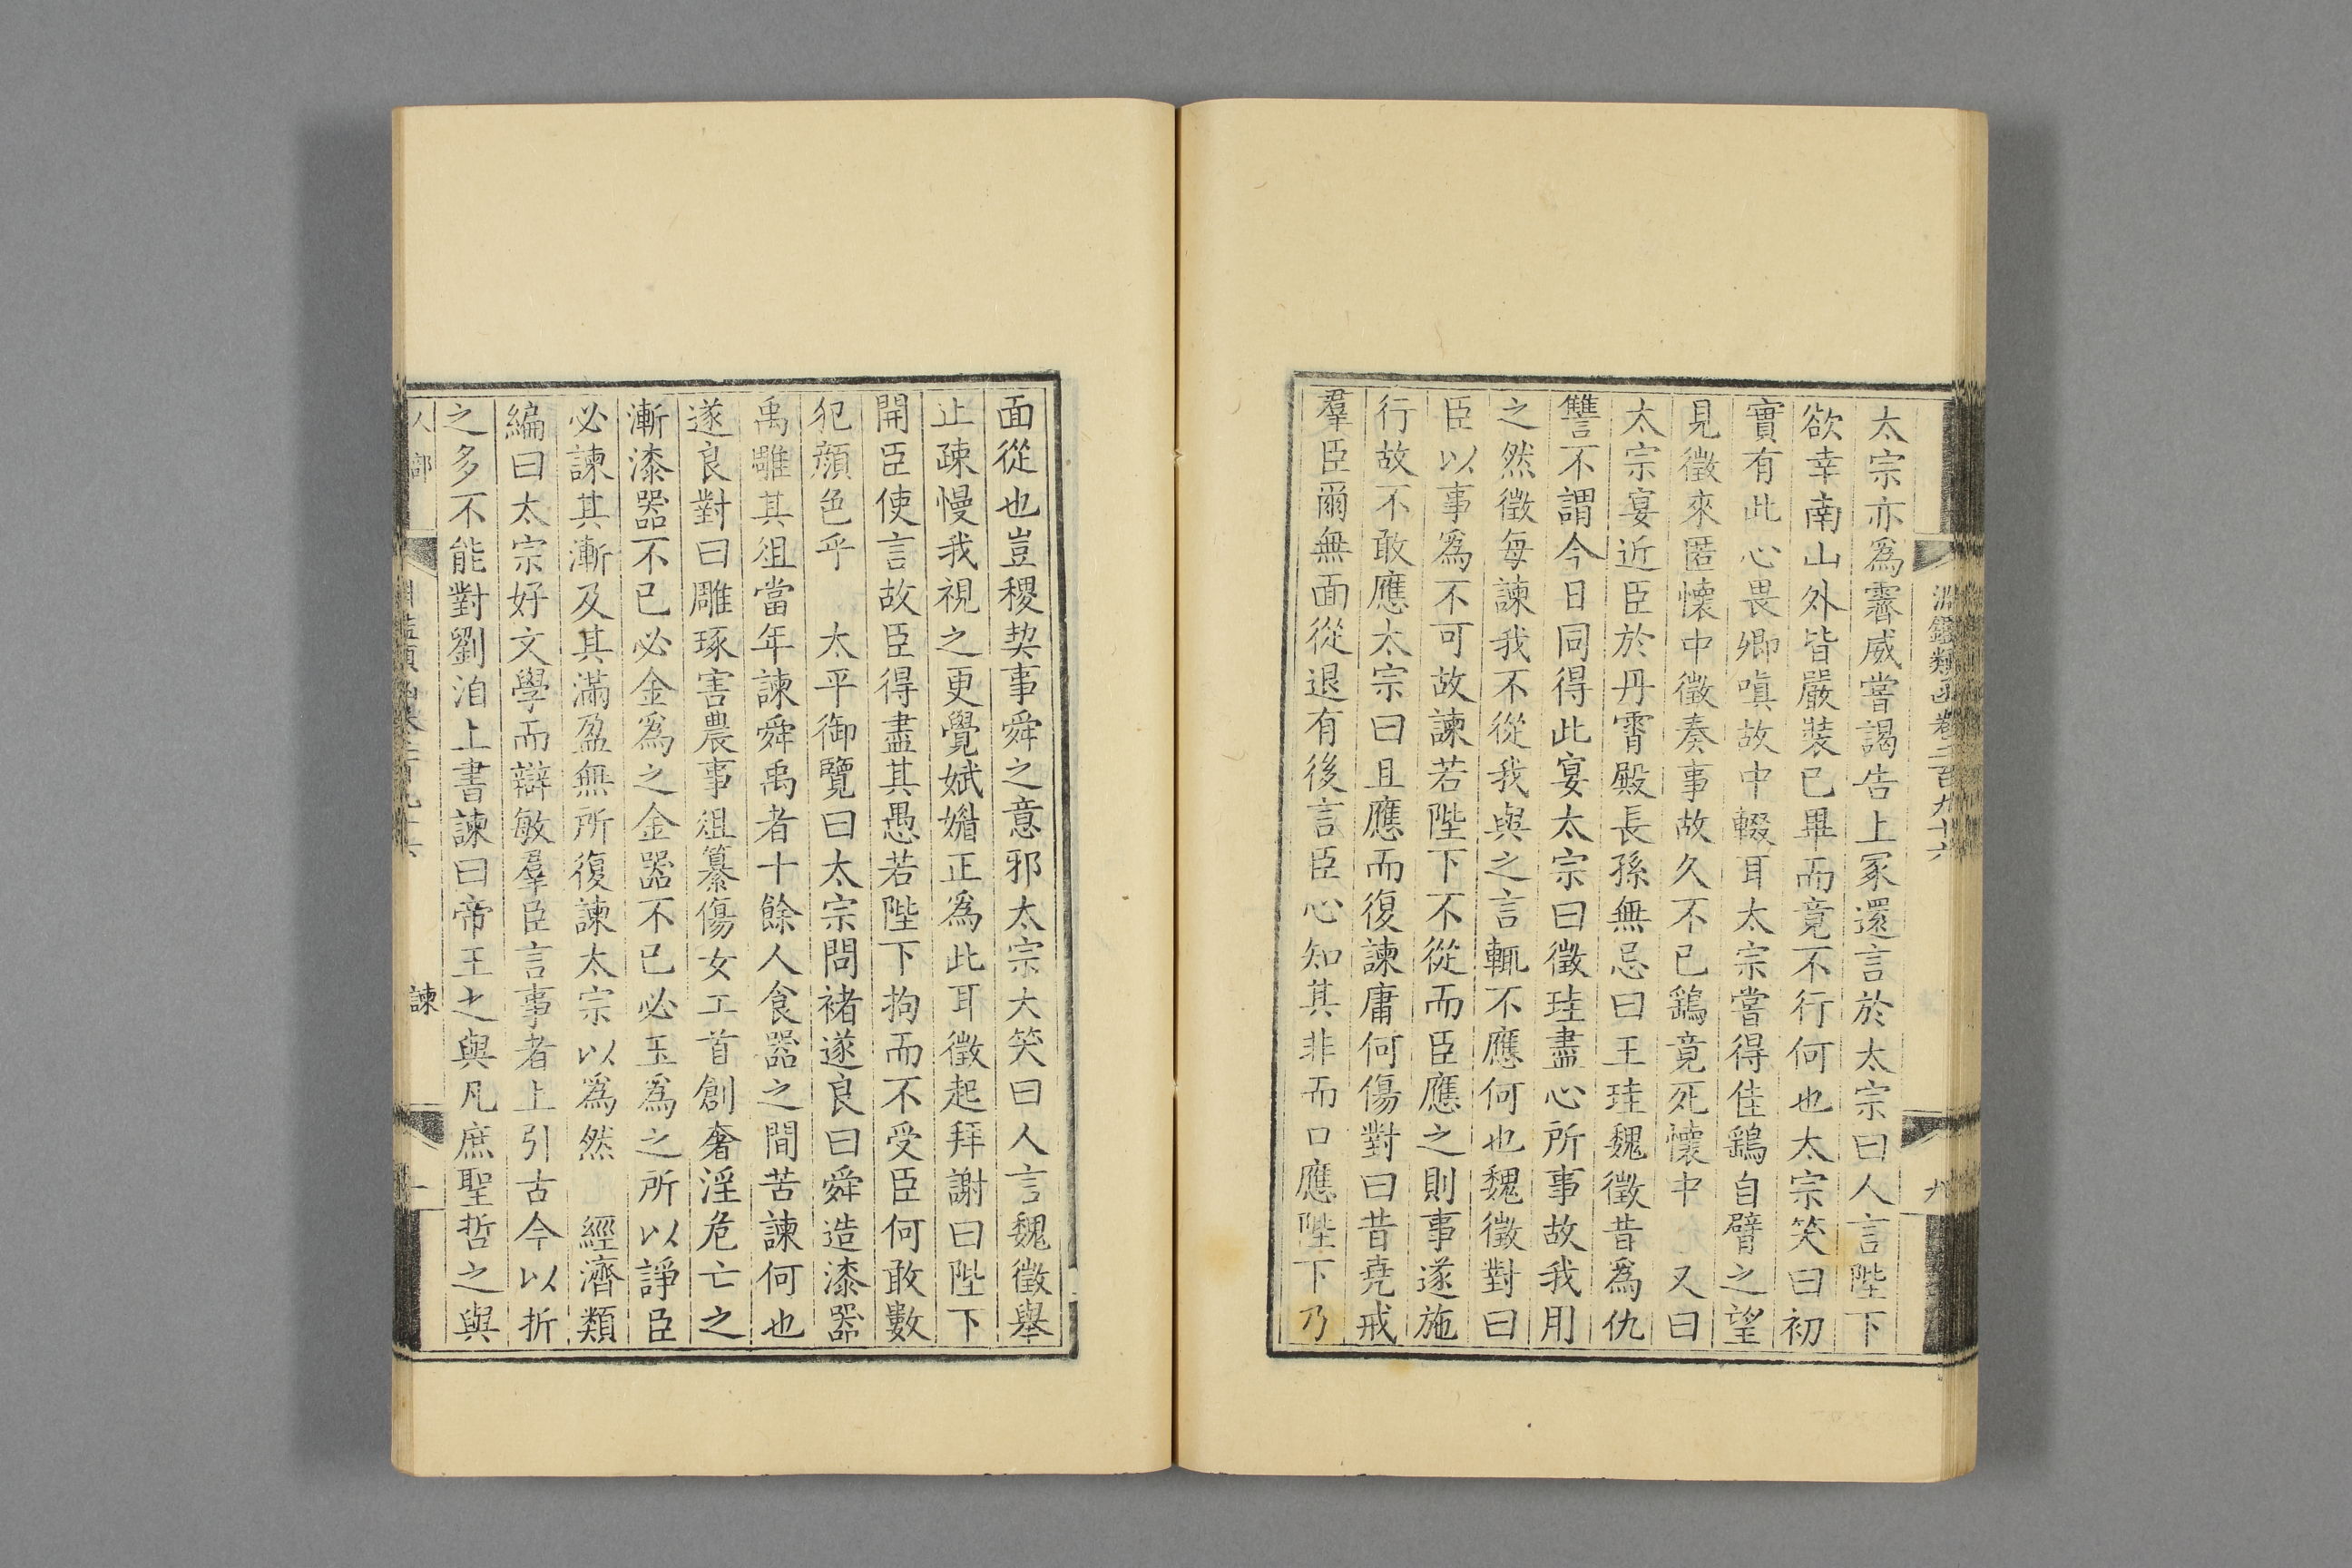 淵鑑類函卷二百九十六
九
太宗亦爲霽威嘗謁告上冢還言於太宗曰人言陛下
欲幸南山外皆嚴裝已畢而竟不行何也太宗笑曰初
實有此心畏卿嗔故中輟耳太宗嘗得佳鷂自臂之望
見徵來匿懷中徵奏事故久不已鷂竟死懷中 又曰
太宗宴近臣於丹霄殿長孫無忌曰王珪魏徵昔爲仇
讐不謂今日同得此宴太宗曰徵珪盡心所事故我用
之然徵每諫我不從我與之言輒不應何也魏徵對曰
臣以事爲不可故諫若陛下不從而臣應之則事遂施
行故不敢應太宗曰且應而復諫庸何傷對曰昔堯戒
羣臣爾無面從退有後言臣心知其非而口應陛下乃
面從也豈稷契事舜之意邪太宗大笑曰人言魏徵舉
止疎慢我視之更覺娬媚正爲此耳徵起拜謝曰陛下
開臣使言故臣得盡其愚若陛下拘而不受臣何敢數
犯顏色乎 太平御覽曰太宗問褚遂良曰舜造漆器
禹雕其俎當年諫舜禹者十餘人食器之間苦諫何也
遂良對曰雕琢害農事俎纂傷女工首創奢淫危亡之
漸漆器不已必金爲之金器不已必玉爲之所以諍臣
必諫其漸及其滿盈無所復諫太宗以爲然 經濟類
編曰太宗好文學而辯敏羣臣言事者上引古今以折
之多不能對劉洎上書諫曰帝王之與凡庶聖哲之與
人部
諫